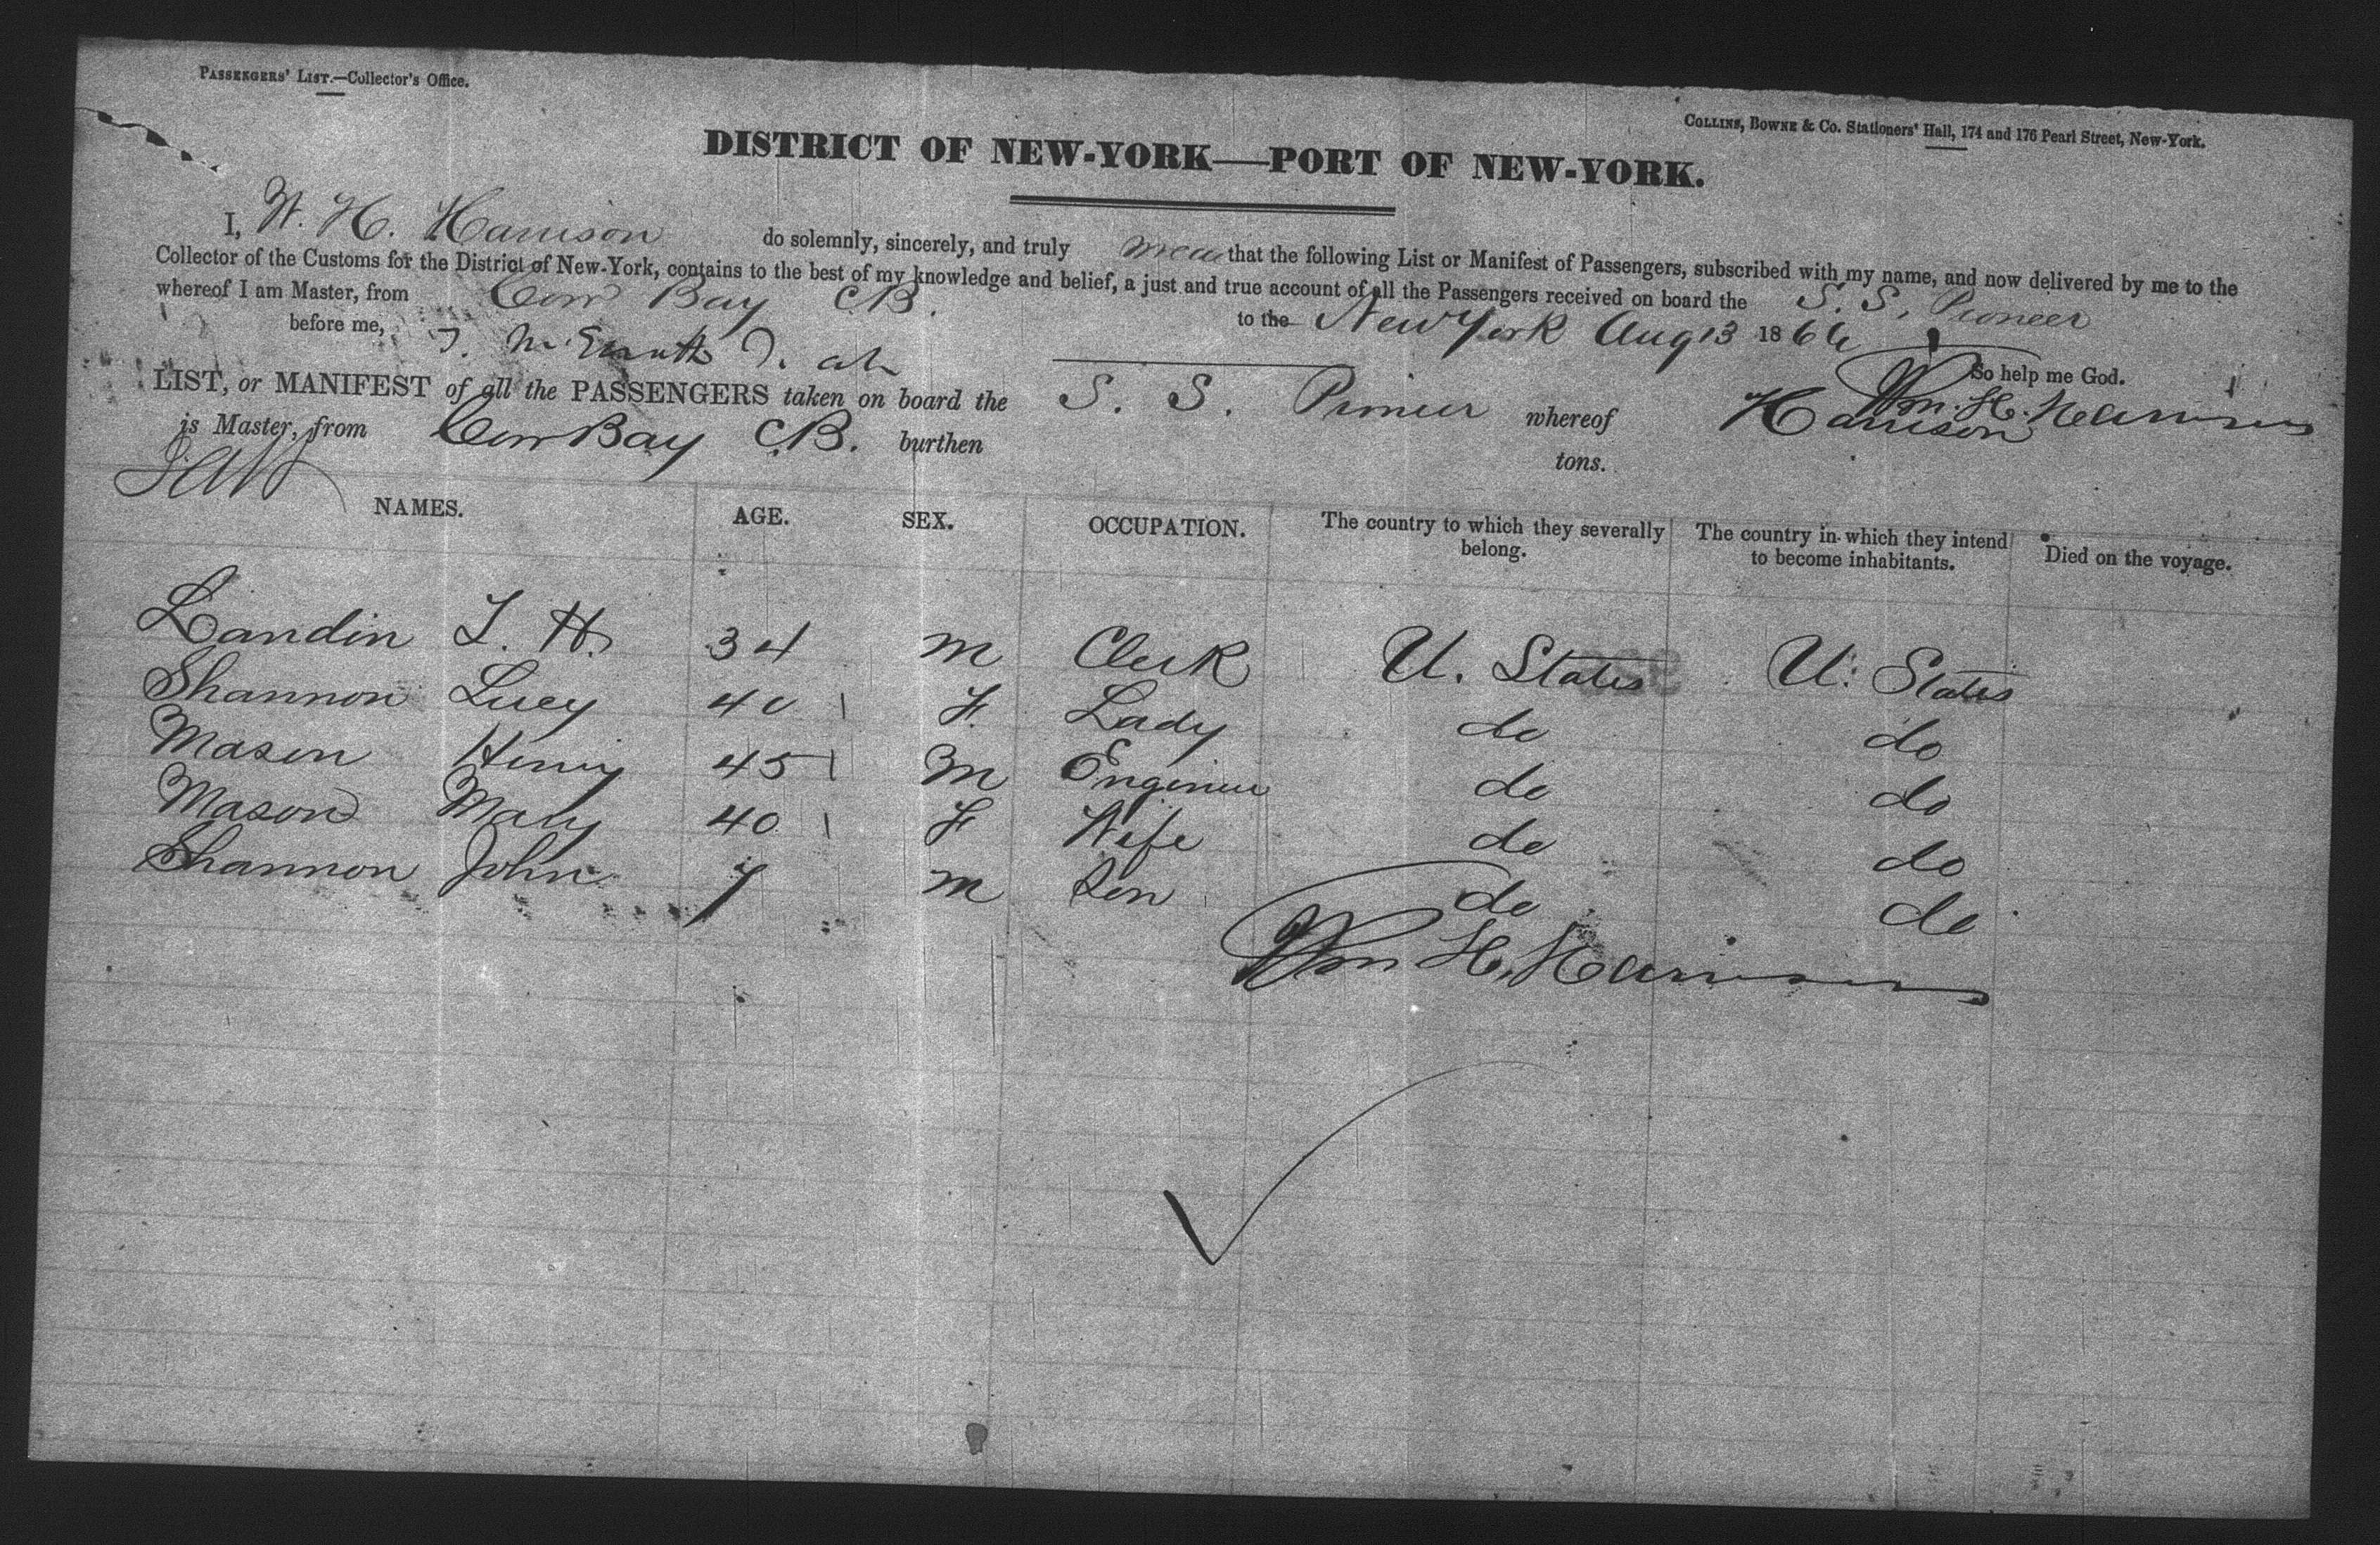 PASSENGERS' LIST.—Collector's Office.
COLLINS, BOWNE & Co. Stationers' Hall, 174 and 176 Pearl Street, New-York.
DISTRICT OF NEW-YORK—PORT OF NEW-YORK.
I, W. H. Harrison do solemnly, sincerely, and truly that the following List or Manifest of Passengers, subscribed with my name, and now delivered by me to the
Collector of the Customs for the District of New-York, contains to the best of my knowledge and belief, a just and true account of all the Passengers received on board the S. S. Pioneer
whereof I am Master, from Cow Bay C.B. to the New York Aug 13 1866
So help me God.
before me,
Wm. H. Harrison
LIST, or MANIFEST of all the PASSENGERS taken on board the S. S. Pioneer whereof Harrison
is Master, from Cow Bay C.B. burthen tons.
NAMES. AGE. SEX. OCCUPATION. The country to which they severally belong. The country in which they intend to become inhabitants. Died on the voyage.
Landin T. H. 34 M Clerk U. States U. States
Shannon Lucy 40 F. Lady do do
Mason Henry 45 M Engineer do do
Mason Mary 40 F Wife do do
Shannon John 7 M Son do do
Wm H. Harrison